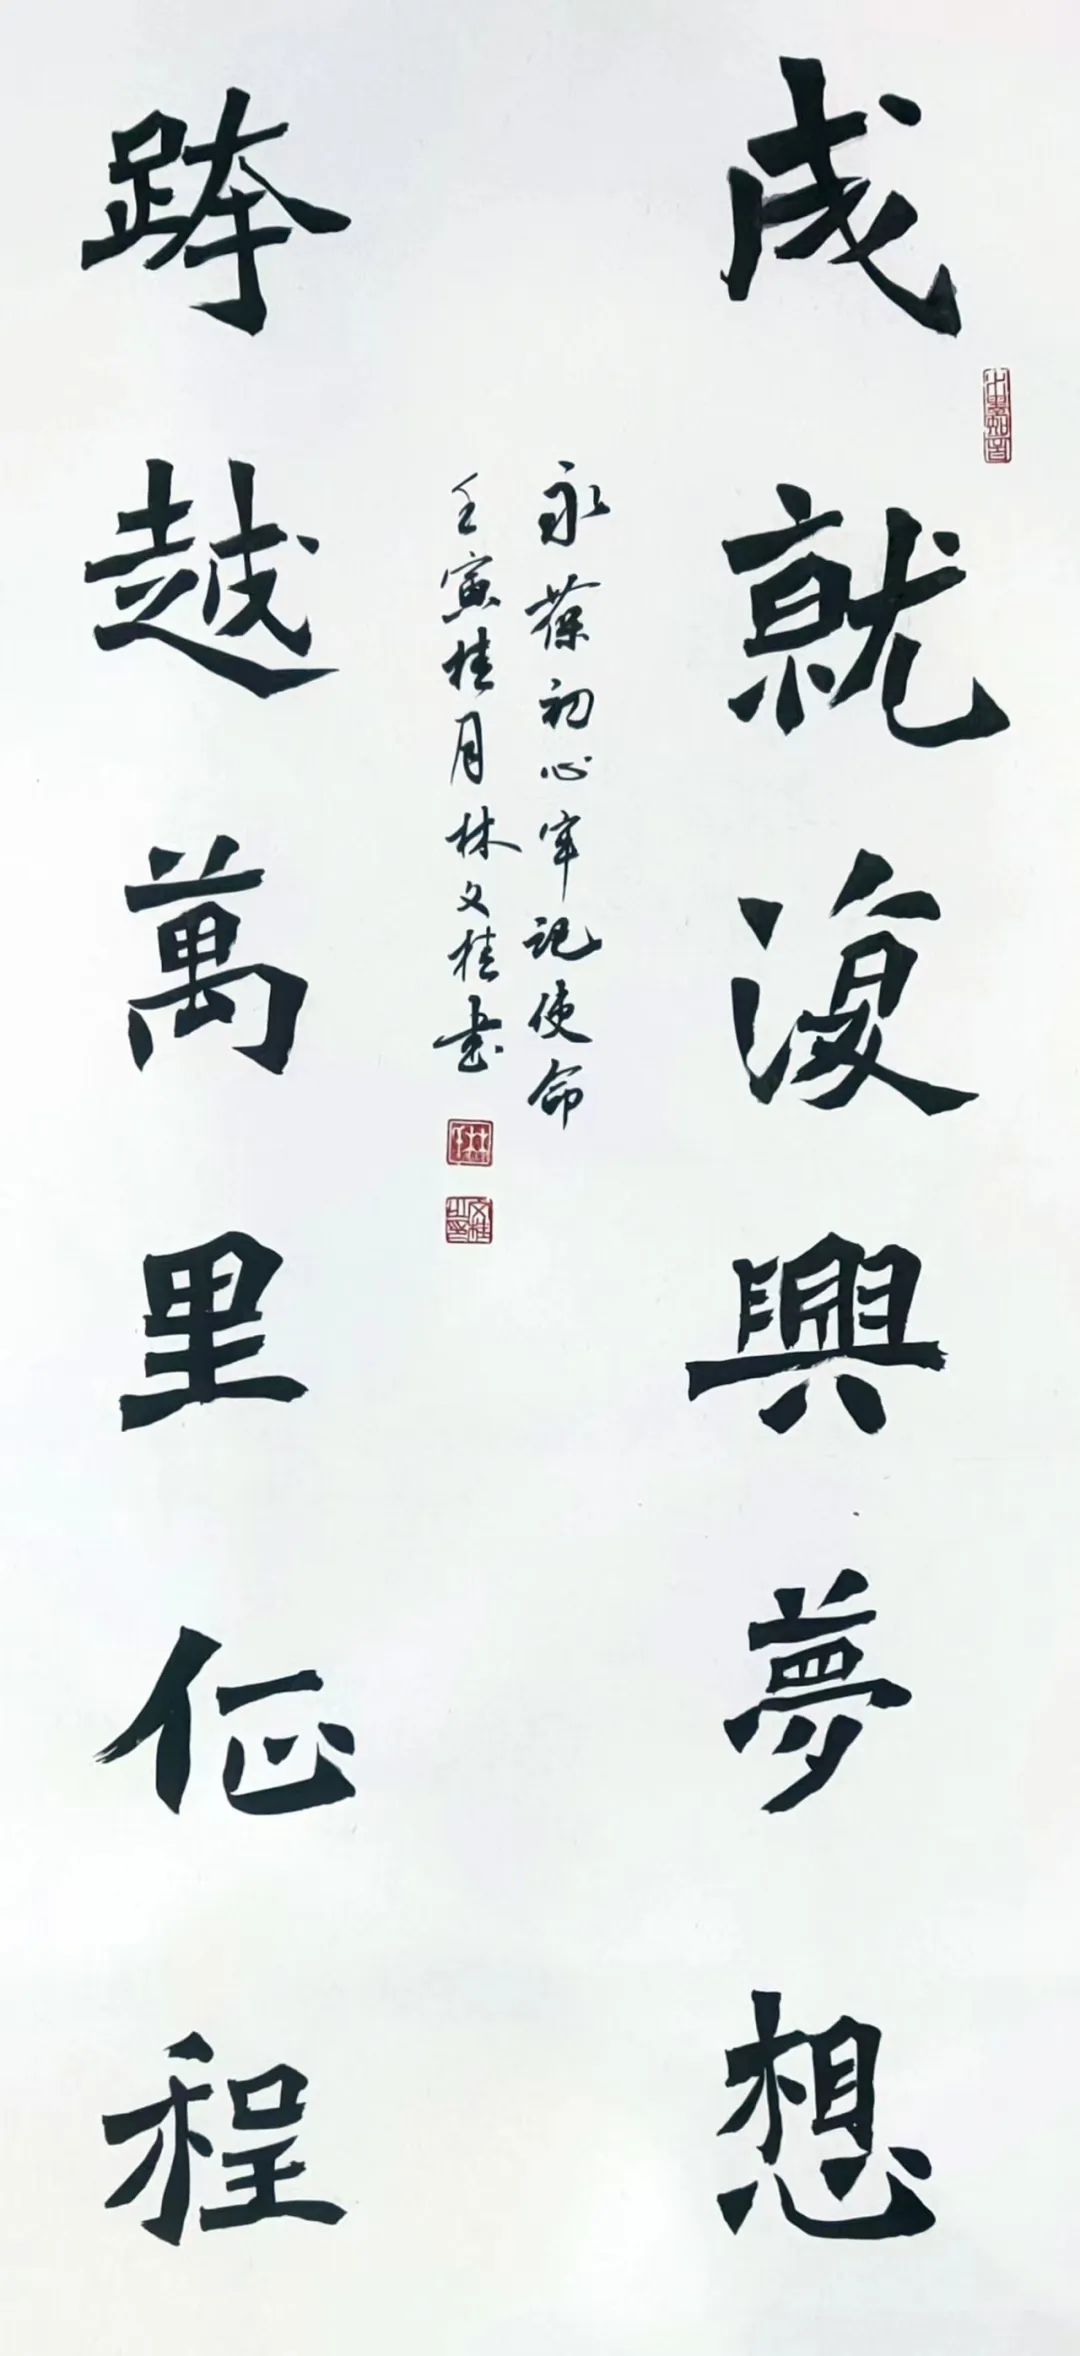 成就復興夢想
永葆初心牢记使命
壬寅桂月林文桂书
跨越萬里征程